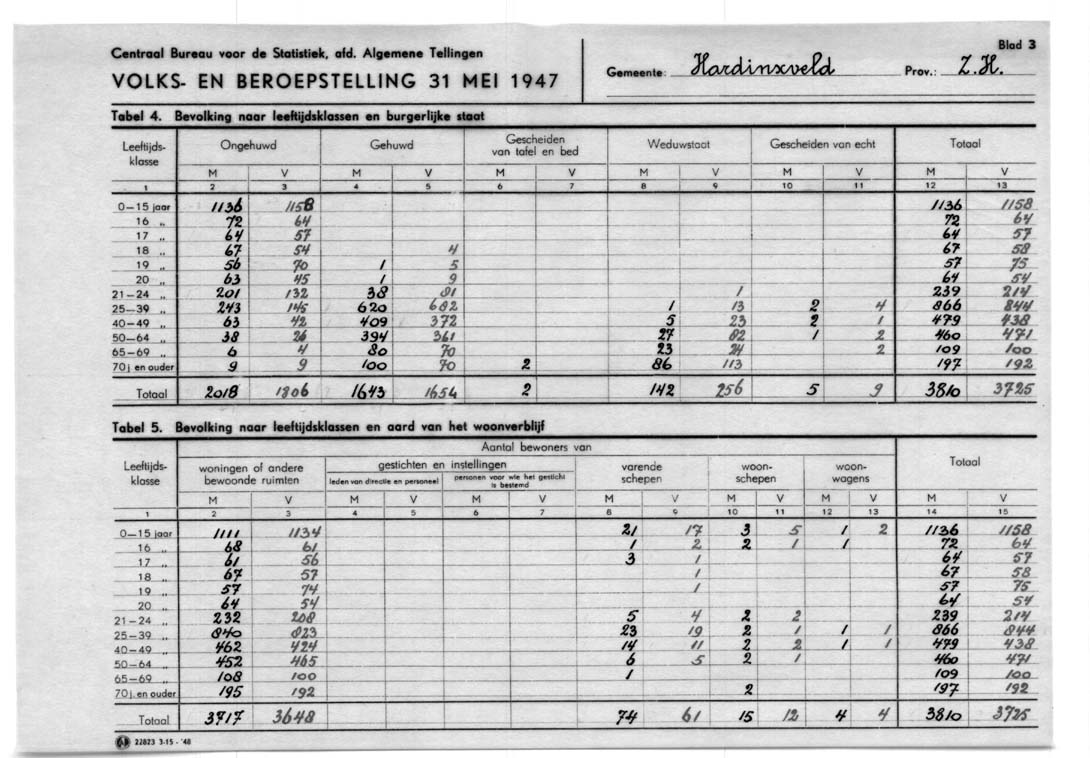 Blad 3
Centraal Bureau voor de Statistiek, afd. Algemene Tellingen
VOLKS- EN BEROEPSTELLING 31 MEI 1947 Gemeente: Hardinxveld Prov.: Z.H.
Tabel 4. Bevolking naar leeftijdsklassen en burgerlijke staat
Leeftijds-klasse Ongehuwd Gehuwd Gescheiden van tafel en bed Weduwstaat Gescheiden van echt Totaal
M V M V M V M V M V M V
1 2 3 4 5 6 7 8 9 10 11 12 13
0-15 jaar 1136 1158 1136 1158
16 „ 72 64 72 64
17 „ 64 57 64 57
18 „ 67 54 4 67 58
19 „ 56 70 1 5 57 75
20 „ 63 45 1 9 64 54
21-24 „ 201 132 38 81 1 239 214
25-39 „ 243 145 620 682 1 13 2 4 866 844
40-49 „ 63 42 409 372 5 23 2 1 479 438
50-64 „ 38 26 394 361 27 82 1 2 460 471
65-69 „ 6 4 80 70 23 24 2 109 100
70 j. en ouder 9 9 100 70 2 86 113 197 192
Totaal 2018 1806 1643 1654 2 142 256 5 9 3810 3725
Tabel 5. Bevolking naar leeftijdsklassen en aard van het woonverblijf
Leeftijds-klasse Aantal bewoners van Totaal
woningen of andere bewoonde ruimten gestichten en instellingen varende schepen woon-schepen woon-wagens
leden van directie en personeel personen voor wie het gesticht is bestemd
M V M V M V M V M V M V M V
1 2 3 4 5 6 7 8 9 10 11 12 13 14 15
0-15 jaar 1111 1134 21 17 3 5 1 2 1136 1158
16 „ 68 61 1 2 2 1 1 72 64
17 „ 61 56 3 1 64 57
18 „ 67 57 1 67 58
19 „ 57 74 1 57 75
20 „ 64 54 64 54
21-24 „ 232 208 5 4 2 2 239 214
25-39 „ 840 823 23 19 2 1 1 1 866 844
40-49 „ 462 424 14 11 2 2 1 1 479 438
50-64 „ 452 465 6 5 2 1 460 471
65-69 „ 108 100 1 109 100
70 j. en ouder 195 192 2 197 192
Totaal 3717 3648 74 61 15 12 4 4 3810 3725
22823 3-15-'48